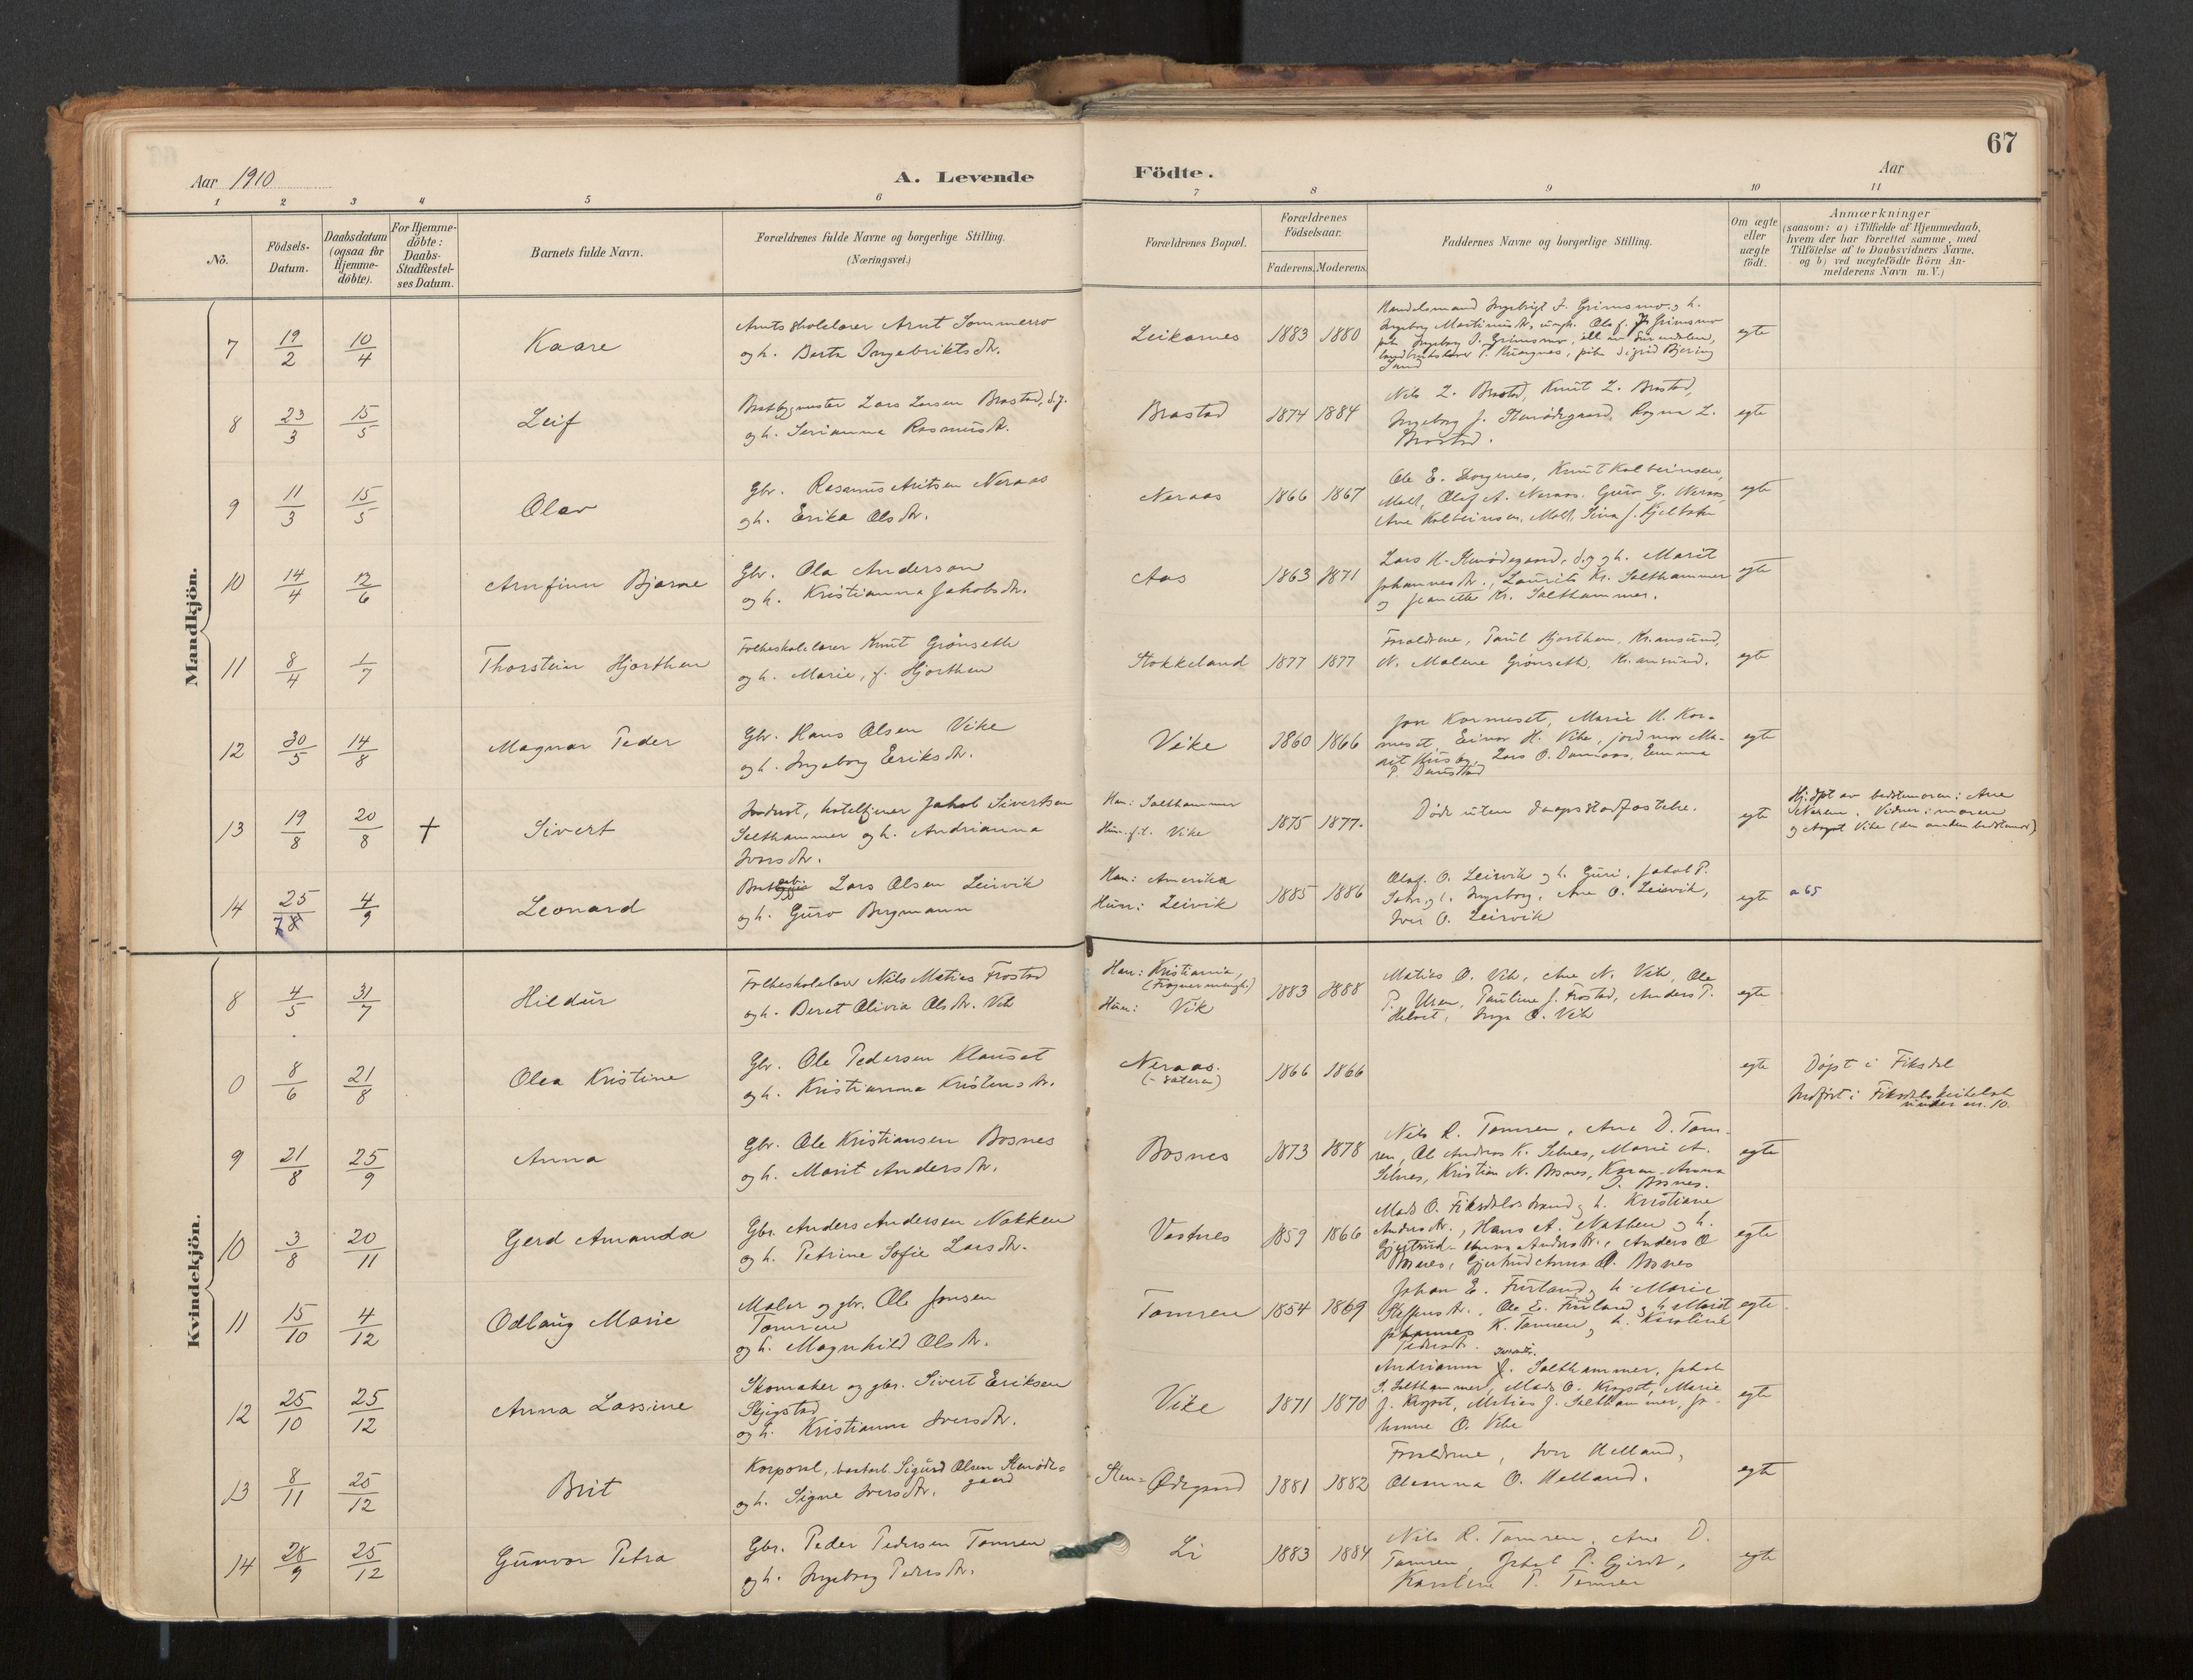 67
Aar 1910
A. Levende Födte.
Aar
1 2 3 4 5 6 7 8 9 10 11
No.
Födsels-Datum.
Daabsdatum (ogsaa för Hjemme-döbte).
For Hjemme-döbte: Daabs-Stadfæstel-ses Datum.
Barnets fulde Navn.
Forældrenes fulde Navne og borgerlige Stilling.
(Næringsvei.)
Forældrenes Bopæl.
Forældrenes Födselsaar.
Faderens. Moderens.
Faddernes Navne og borgerlige Stilling.
Om ægte eller uægte födt.
Anmærkninger
(saasom: a) i Tilfælde af Hjemmedaab, hvem der har forrettet samme, med Tilföielse af to Daabsvidners Navne. og b) ved uægtefödte Börn An-melderens Navn m. V.)
Mandkjön.
7 19/2 10/4 Kaare
Amtsskolelærer Arnt Sommerro
og h. Berta Ingebriktsdtr.
Leikarnes 1883 1880
Handelsmand Ingebrigt J. Grimsmo og h.
Ingeborg Martinusdtr, ungk. Olaf J. Grimsmo
pike Ingeborg J. Grimsmo, all av Surendalen,
pike Sigrid Bjering
Sand
egte
8 23/3 15/5 Leif
Lars Larsen Brastad, d.y.
og h. Serianna Rasmusdtr.
Brastad 1874 1884
Nils L. Brastad, Knut L. Brastad,
Ingeborg J. Stenødegaard, Ragna L.
Brastad.
egte
9 11/3 15/5 Olav
Gbr. Rasmus Aritsen Neraas
og h. Erika Olsdtr.
Neraas 1866 1867
Ole E. Dorgenes, Knut Kolbeinsen,
Moll, Olaf A. Neraas. Guro G. Neraas,
Ane Kolbeinsen, Moll,
egte
10 14/4 12/6 Arnfinn Bjarne
Gbr. Ola Anderson
og h. Kristianna Jakobsdtr.
Aas 1863 1871
Lars K. Stenødegaard, d.y. og h. Marit
Johannesdtr., Laurits Kr. Salthammer
og Jeanette Kr. Salthammer.
egte
11 8/4 1/7 Thorstein Hjorthen
Folkeskolelærer Knut Grønseth
og h. Marie, f. Hjorthen
Stokkeland 1877 1877
Forældrene, Paul Hjorthen, Kr.ansund,
N. Malene Grønseth, Kr.ansund.
egte
12 30/5 14/8 Magnar Peder
Gbr. Hans Olsen Vike
og h. Ingeborg Eriksdtr.
Vike 1860 1866
Jon Kormeset, Marie H. Kor-
meset, Einar H. Vike, jordmor Ma-
rit Husøy, Lars O. Damaas, Emma
P. Daustad
egte
13 19/8 20/8 † Sivert
Inderst, hoteltjener Jakob Sivertsen
Salthammer og h. Andrianna
Iversdtr.
Han: Salthammer
Hun: f.t. Vike
1875 1877.
Døde uten daapsstadfæstelse.
egte
Hj.døpt av bedstemoren: Ane
Vidner: moren
og August Vike (den anden bedstemor)
14 25/7 8 4/9 Leonard
Lars Olsen Leirvik
og h. Guro Bergmann
Han: Amerika
Hun: Leirvik
1885 1886
Olaf O. Leirvik og h. Guri. Jakob P.
og h. Ingeborg, Ane O. Leirvik,
Iver O. Leirvik
egte
a 65
Kvindekjön.
8 4/5 31/7 Hildur
Folkeskolelærer Nils Matias Frostad
og h. Beret Olivia Olsdtr. Vik
Han: Kristiania,
(Frogner menigh.)
Hun: Vik
1883 1888
Matias O. Vik, Ane N. Vik, Ole
P. Uren, Pauline J. Frostad, Anders P.
Inga O. Vik
egte
0 8/6 21/8 Olea Kristine
Gbr. Ole Pedersen Klauset
og h. Kristianna Kristensdtr.
Neraas.
(-sætera)
1866 1866
egte
Døpt i Fiksdal
Indført i Fiksdals kirkebok
under nr. 10.
9 21/8 25/9 Anna
Gbr. Ole Kristiansen Bosnes
og h. Marit Andersdtr.
Bosnes 1873 1878
Nils R. Tomren, Ane D. Tom-
ren, Ole Andreas K. Selnes, Marie A.
Selnes, Kristian N. Bosnes, Karen-Anna
O. Bosnes.
egte
10 3/8 20/11 Gerd Amanda
Gbr. Anders Andersen Nakken
og h. Petrine Sofie Larsdtr.
Vestnes 1859 1866
Mads O. Fiksdalsstrand og h. Kristiane
Andersdtr., Hans A. Nakken og h.
Gjertrud-Anna Andersdtr., Anders O
Bosnes, Gjertrud Anna O. Bosnes
egte
11 15/10 4/12 Odlaug Marie
Maler og gbr. Ole Jonsen
Tomren
og h. Magnhild Olsdtr.
Tomren 1854 1869
Johan E. Furland og h. Marie
Steffensdtr., Ole E. Furland og h. Marit
Johannes K. Tomren og h. Karoline
Pedersdtr.
egte
12 25/10 25/12 Anna Lassine
Skomaker og gbr. Sivert Eriksen
Skjegstad
og h. Kristianna Iversdtr.
Vike 1871 1870
Andrianna Iversdtr. Salthammer, Jakob
S. Salthammer, Mads O. Kropset, Marie
J. Kropset, Matias J. Salthammer, Jo-
hanne O. Vike
egte
13 8/11 25/12 Brit
Korporal, Sigurd Olsen Stenøde-
gaard
og h. Signe Iversdtr.
Sten-Ødegaard 1881 1882
Forældrene, Iver Helland,
Olianna O. Helland.
egte
14 28/9 25/12 Gunvor Petra
Gbr. Peder Pedersen Tomren
og h. Ingeborg Pedersdtr.
Li 1883 1884
Nils R. Tomren, Ane D.
Tomren, Jakob P. Gjerde,
Karoline P. Tomren
egte